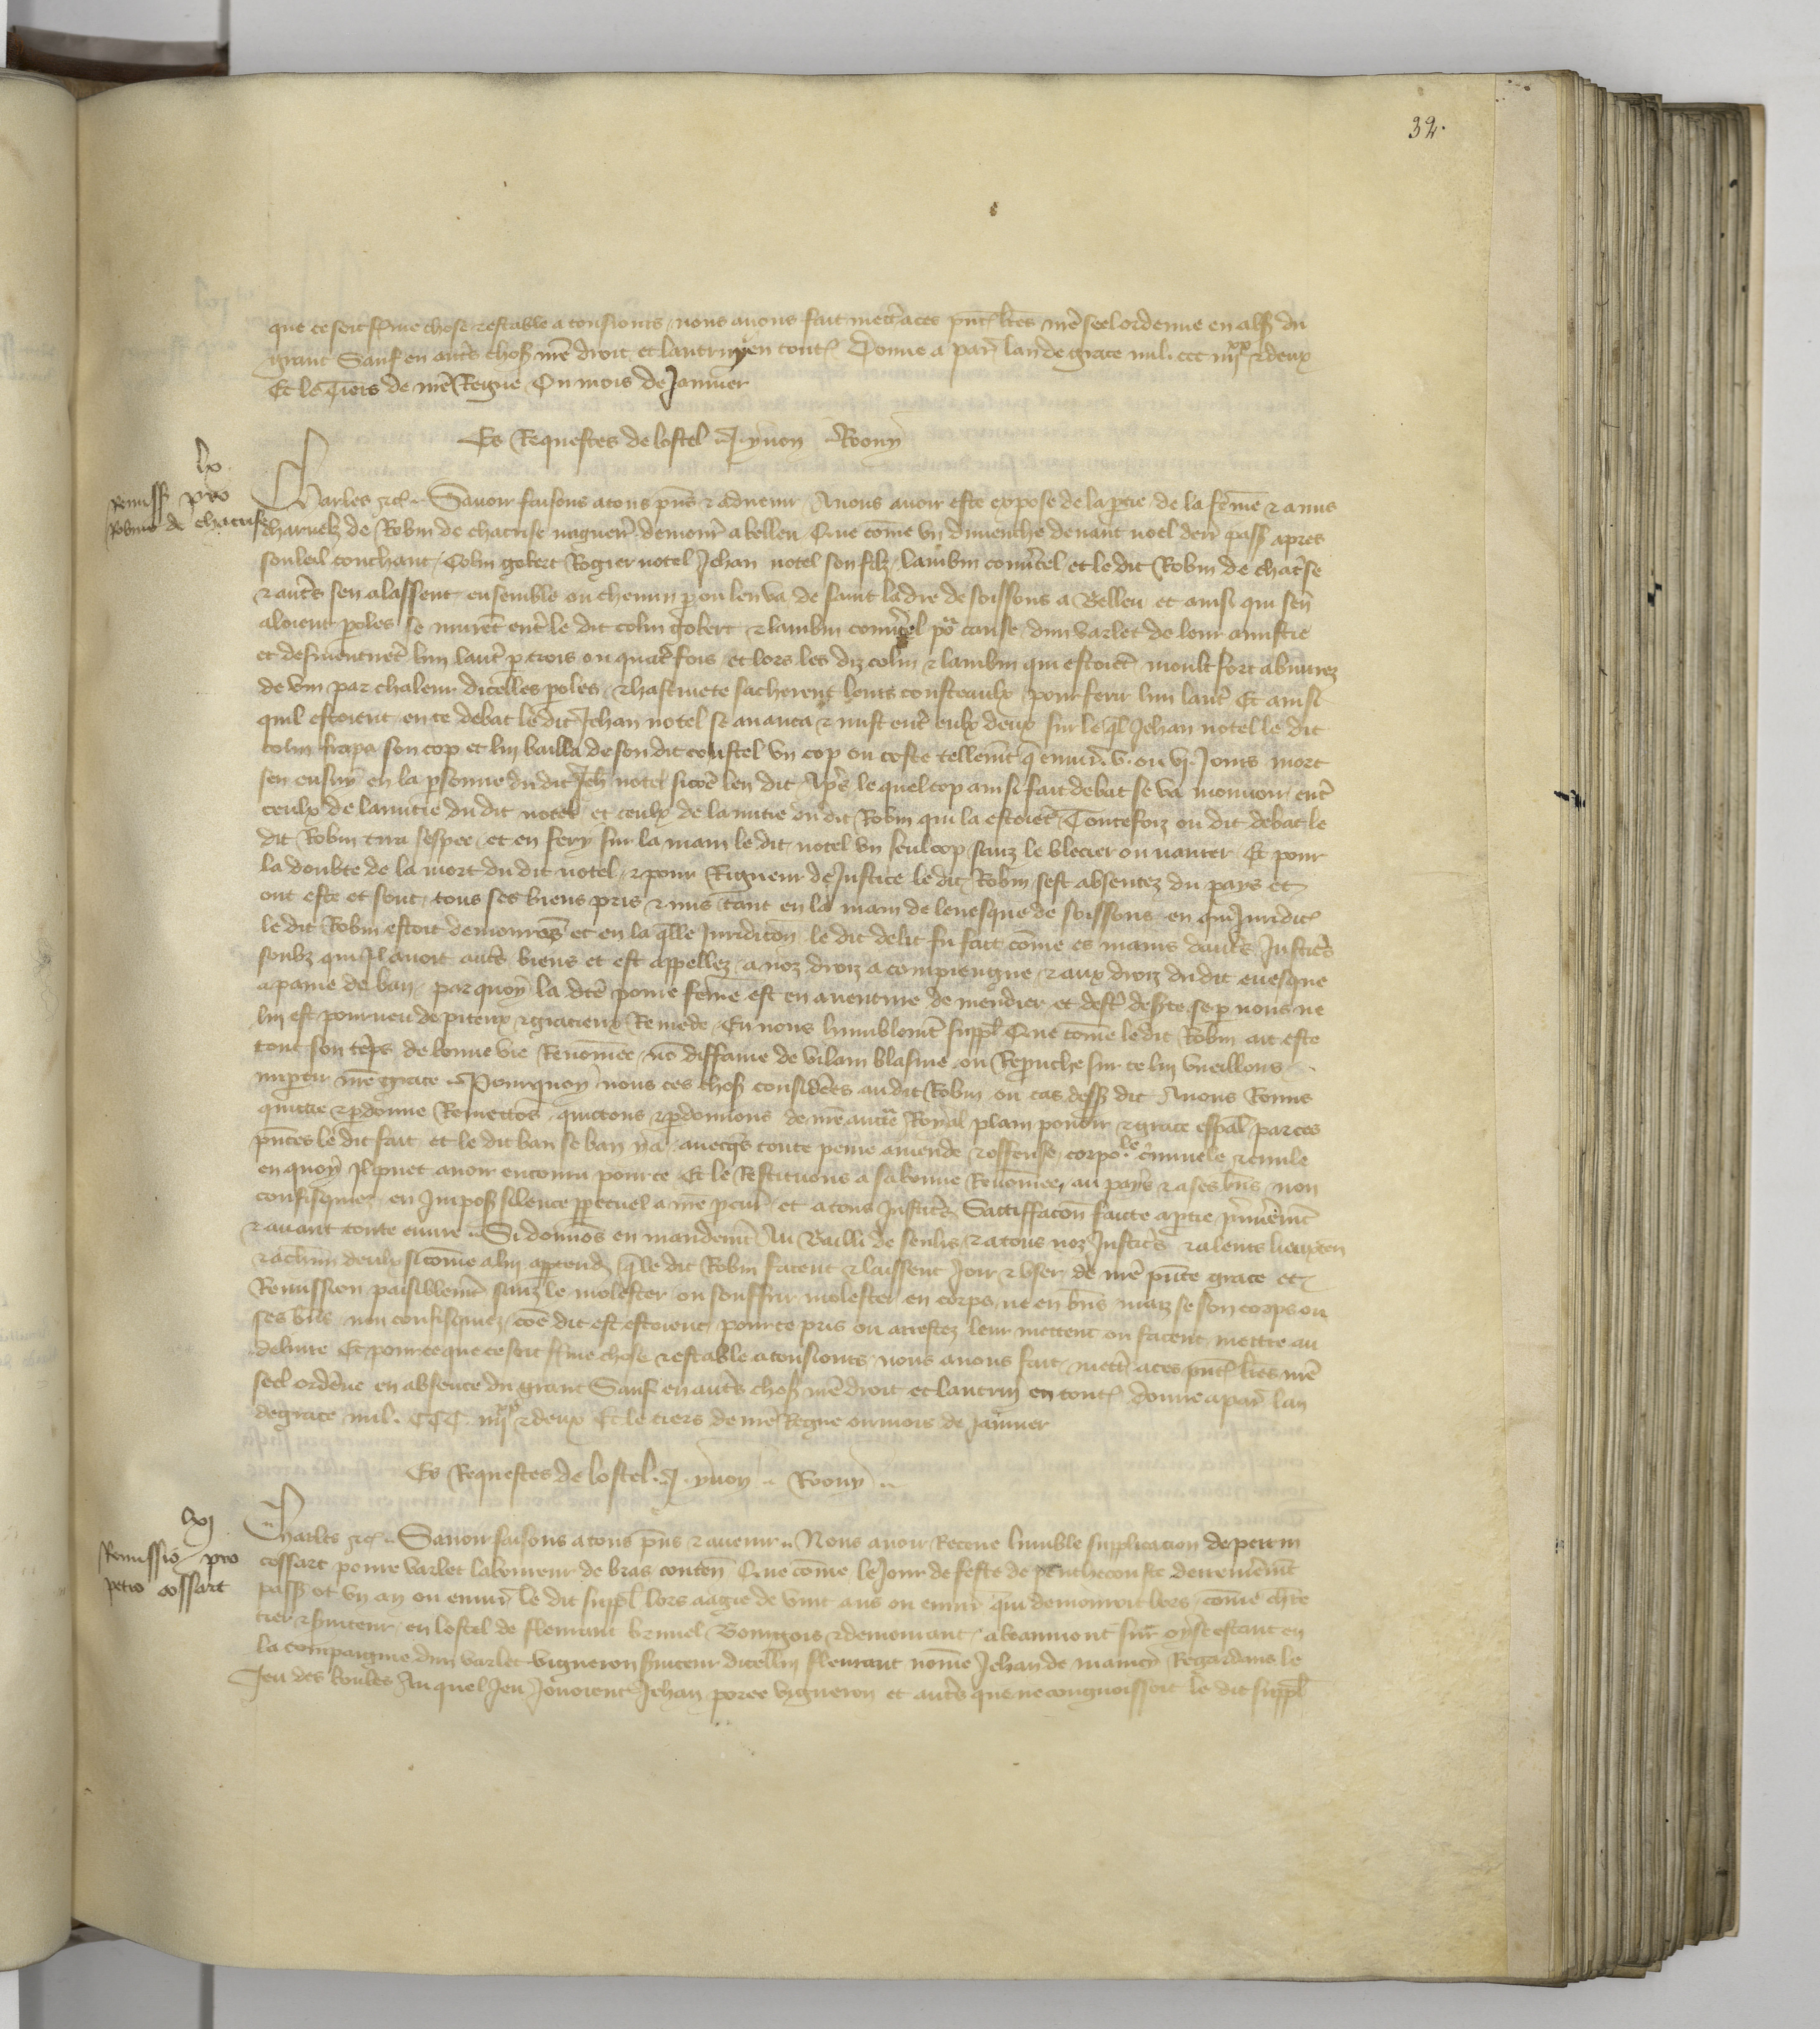 32.
que ce soit ferme chose et estable a tousiours nous avons fait mettre a ces pnt lres nre seel ordenne en abs du
grant Sauf en autres choses nre droit et lautruy en tout Donne a par lan de grace mil ccc iiijxx et deux
Et le tiers de nre Regne Ou mois de Januier
Es Requestes de lostel J ynon Roony
lx
Remiss pro
Robino de chacrise
Charles etc Sauoir faisons a tous pns et aduenir A nous auoir este expose de la ptie de la feme et amis
charnelz de Robin de chacrise nagueres demour a belleu Que come vn dimenche deuant noel derr pass apres
souleil couchant Colin gobert Rogier notel Jehan notel son filz lambin et le dit Robin de chacrise
et autres sen alassent ensemble ou chemin p ou len va de saint ladre de soissons a Belleu et ainsi qui sen
aloient poles se murent entre le dit colin gobert et lambin por cause dun varlet de leur amistie
et desmentirent lun lautre p trois ou quatre fois et lors les diz colin et lambin qui estoient moult fort abuurez
de vin par chaleur dicelles poles et hastiuete sacherent leurs cousteaulx pour ferir lun lautre Et ainsi
quil estoient en ce debat le dit Jehan notel se auanca et mist entre eulx deux sur le ql Jehan notel le dit
colin frapa son cop et luy bailla de son dit coustel vn cop ou coste tellemt q enuir v. ou vj. Jours mort
sen ensuy en la psonne du dit Jeh notel sicoe len dit Aps le quel cop ainsi fait debat se va mouuoir entre
ceulx de lamitie du dit notel et ceulx de lamitie du dit Robin qui la estoient Toutefoiz ou dit debat le
dit Robin tira sespee et en fery sur la main le dit notel vn seul cop sanz le blecier ou naurer Et pour
la doubte de la mort du dit notel et pour Rigueur de Justice le dit Robin sest absentez du pays et
ont este et sont tous ses biens pris et mis tant en la main de leuesque de soissons en qui Juridic
le dit Robin estoit demourns et en la qlle Juridicon le dit delit fu fait come es mains dautres Justicrs
soubz qui Il auoit autres biens et est appellez a noz droiz a compiengne et aux droiz du dit euesque
a paine de ban par quoy la dte poure feme est en auenture de mendier et destre deserte se p nous ne
luy est pourueu de piteux et gracieux Remede En nous humblemt suppl Que come le dit Robin ait este
tout son teps de bonne vie Renomee ne diffame de vilain blasme ou Reprouche sur ce luy vueillons
impartir nre grace Pourquoy nous ces choses considerees au dit Robin ou cas dess dit Auons Remis
quictie et pdonne Remettons quictons et pdonnons de nre aucte Royal plain pouoir et grace espal par ces
pntes le dit fait et le dit ban se ban y a auecqs toute peine amende et offense corpole criminele et ciuile
en quoy Il puet auoir encouru pour ce Et le Restituons a sa bonne Renomee au pays et a ses bns non
confisquiez en Impos silence ppetuel a nre pcur et a tous Justicrs Satiffacon faicte a ptie premieremt
et auant toute euure Si donnons en mandemt Au Bailli de senlis et a tous noz Justicrs et a leurs lieuxten
et a chun deulx sicome a luy aptend q le dit Robin facent et laissent Joir et vser de nre pnte grace et
Remission paisiblemt sanz le molester ou souffrir molester en corps ne en bns maiz se son corps ou
ses bns non confisquiez coe dit est estoient pour ce pris ou arrestez leur mettent ou facent mettre au
deliure Et pour ce que ce soit ferme chose et estable a tousiours nous auons fait mettre a ces pnt lres nre
seel ordene en absence du grant Sauf en autres chos nre droit et lautruy en tout donne a par lan
de grace mil. CCC. iiijxx et deux Et le tiers de nre Regne ou mois de januier
Es Requestes de lostel J ynon Roony
lxj
Remissio pro
petro cossart
Charles etc Sauoir faisons a tous pns et auenir Nous auoir Receue lumble supplicacion de perrin
cossart poure varlet laboureur de bras conten Que come le Jour de feste de penthecouste derrenieremt
pass ot vn an ou enuir le dit suppl lors aagie de vint ans ou enuir qui demouroit lors come
et seruiteur en lostel de flemant brunel Bourgois et demourant a beaumont sur oyse estant en
la compaignie dun varlet vigneron seruiteur dicellui flemant nome Jehan de maincy Regardans le
Jeu des boules Au quel Jeu Jouoient Jehan poree vigneron et autres que ne congnoissoit le dit suppl